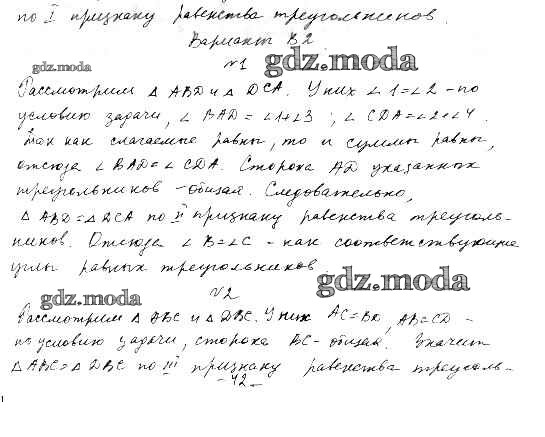 по I признаку равенства треугольников.
Вариант В2
№1
gdz.moda
gdz.moda
Рассмотрим △ ABD и △ DCA. У них ∠1=∠2 - по
условию задачи, ∠ BAD = ∠1+∠3 ; ∠ CDA = ∠2+∠4.
Так как слагаемые равны, то и суммы равны,
отсюда ∠ BAD = ∠ CDA. Сторона AD указанных
треугольников - общая. Следовательно,
△ ABD = △ DCA по II признаку равенства треуголь-
ников. Отсюда ∠ B = ∠ C - как соответствующие
углы равных треугольников.
gdz.moda
gdz.moda
№2
Рассмотрим △ ABC и △ DBC. У них AC = BD, AB = CD -
по условию задачи, сторона BC - общая. Значит
△ ABC = △ DBC по III признаку равенства треуголь-
- 42 -
1